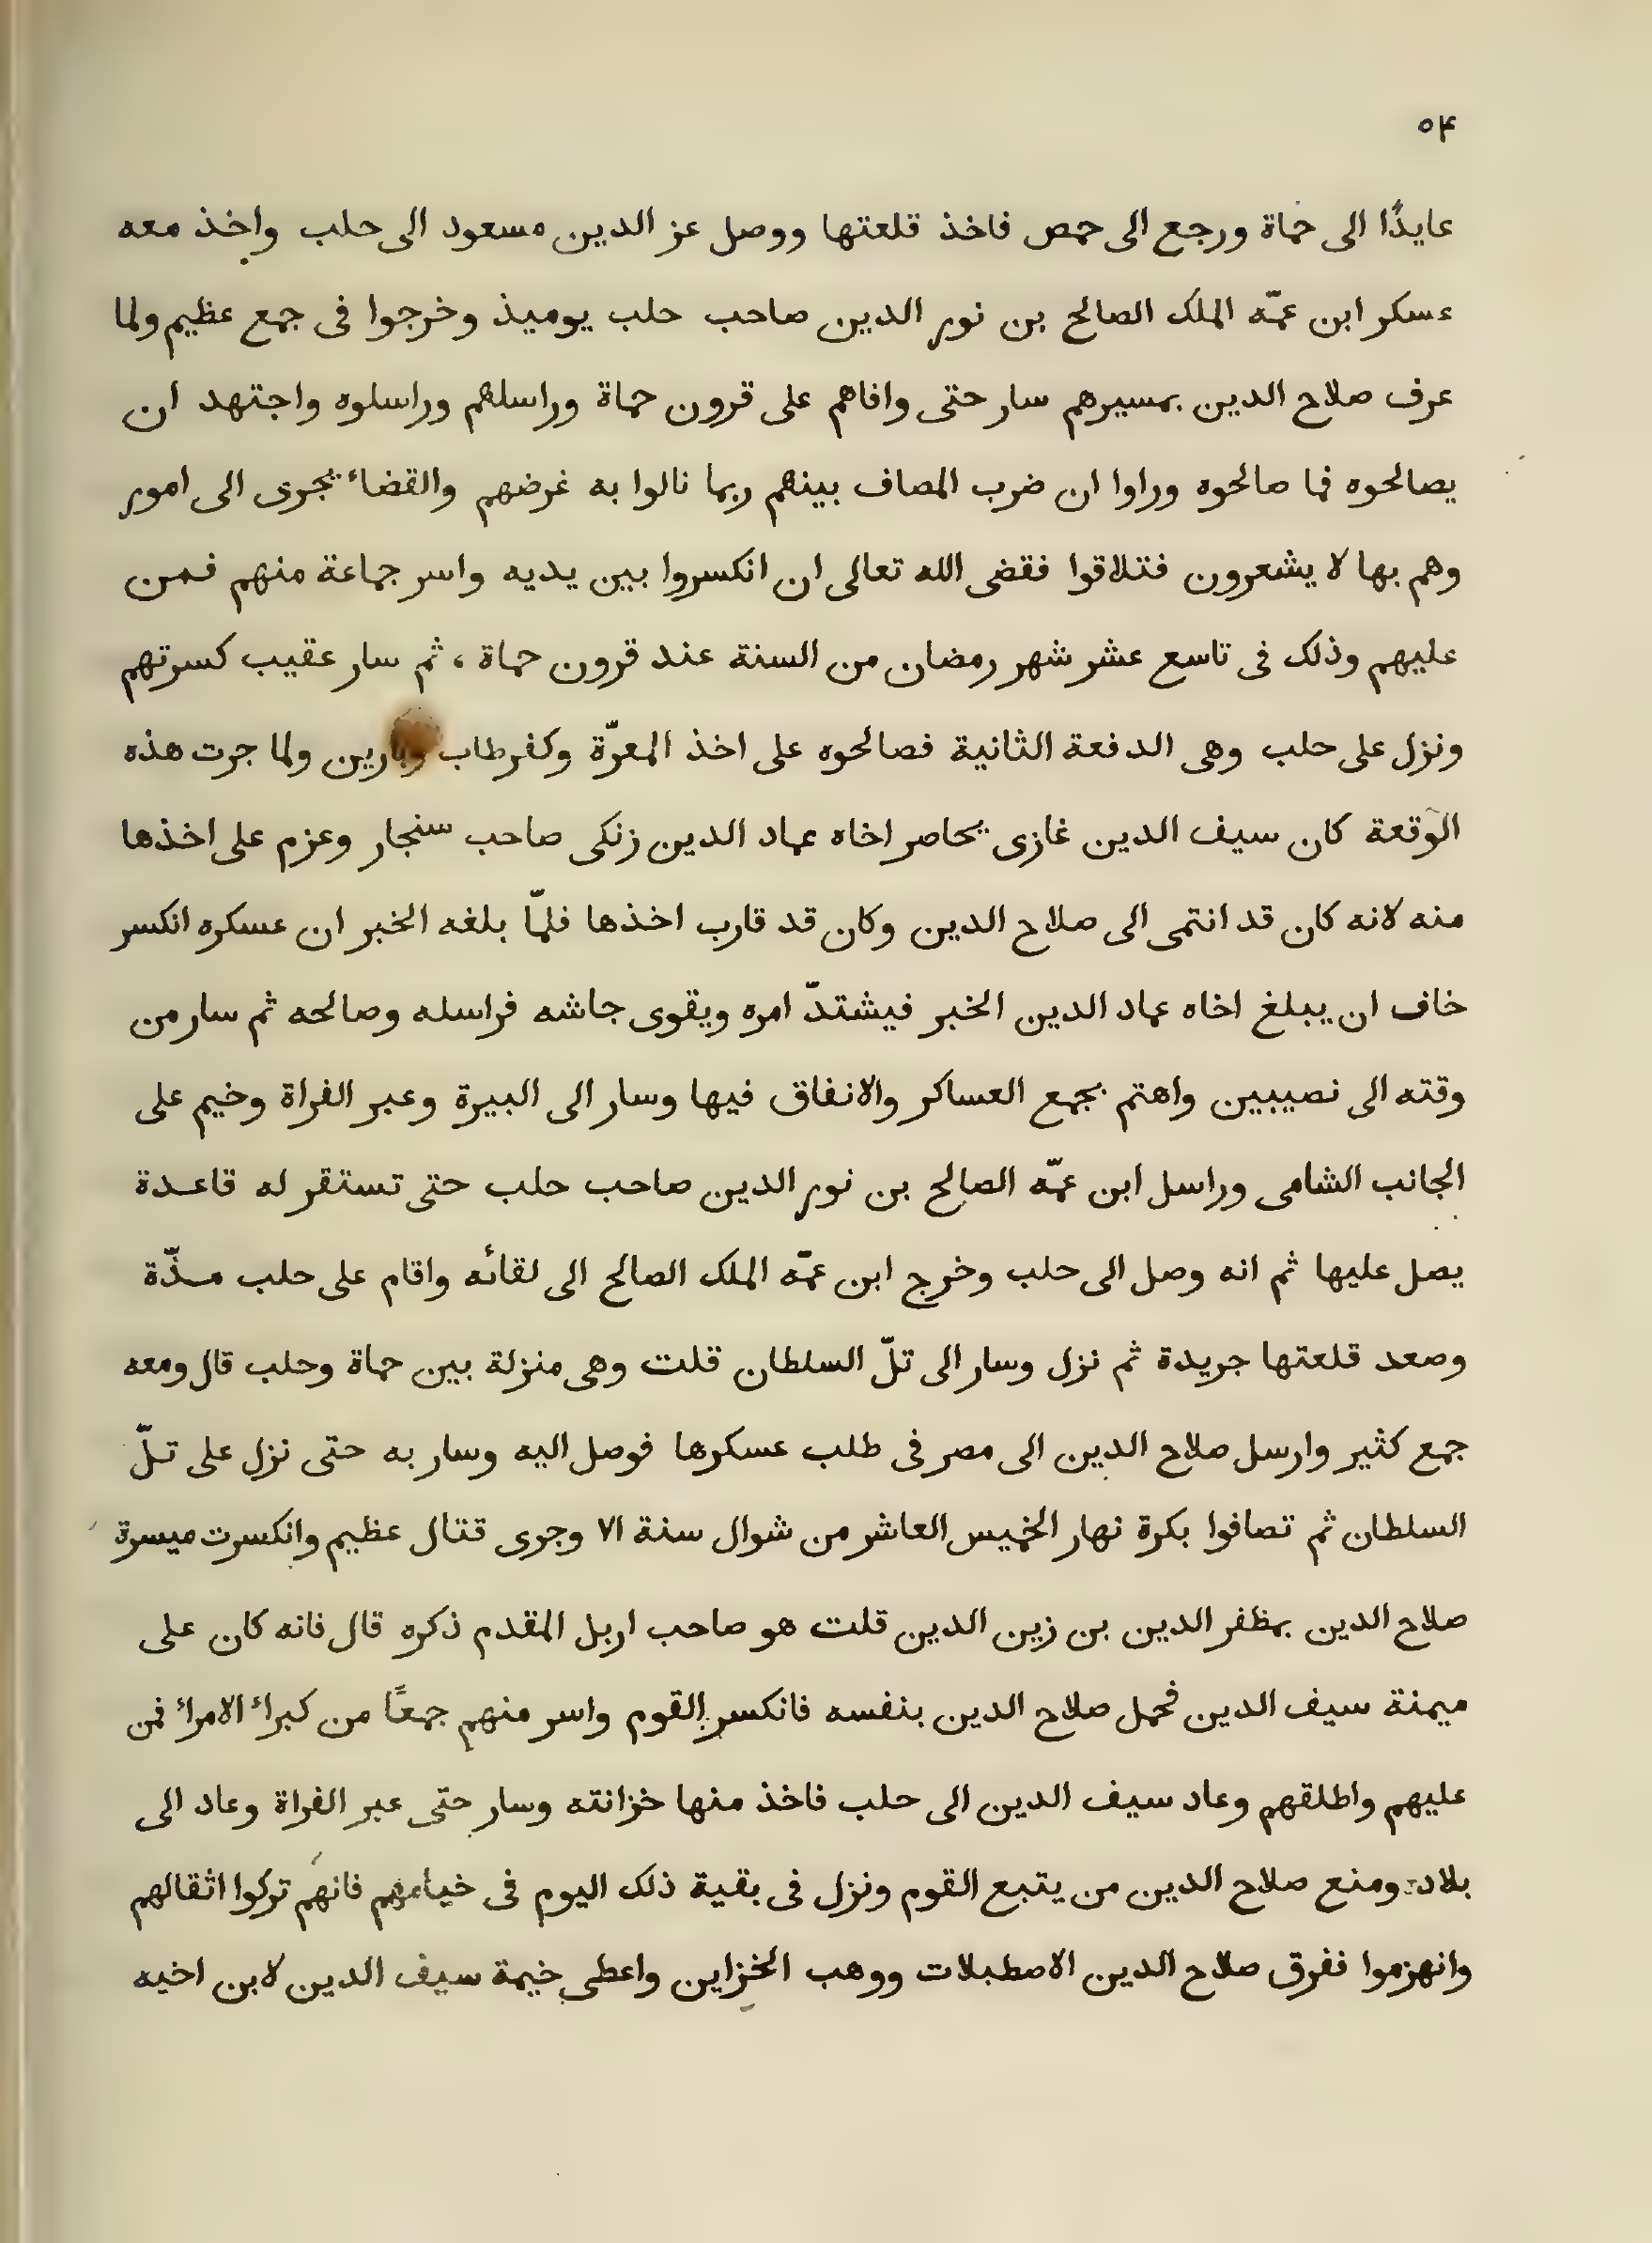 ٥٤
عايدًا الى حماة ورجع الى حمص فاخذ قلعتها ووصل عز الدين مسعود الى حلب واخذ معه
عسكر ابن عمّه الملك الصالح بن نور الدين صاحب حلب يوميذ وخرجوا فى جمع عظيم ولما
عرف صلاح الدين بمسيرهم سار حتى وافاهم على قرون حماة وراسلهم وراسلوه واجتهد ان
يصالحوه فما صالحوه وراوا ان ضرب المصاف بينهم ربما نالوا به غرضهم والقضاء يجرى الى امور
وهم بها لا يشعرون فتلاقوا فقضى الله تعالى ان انكسروا بين يديه واسر جماعة منهم فمن
عليهم وذلك فى تاسع عشر شهر رمضان من السنة عند قرون حماة ، ثم سار عقيب كسرتهم
ونزل على حلب وهى الدفعة الثانية فصالحوه على اخذ المعرّة وكفرطاب وبارين ولما جرت هذه
الوقعة كان سيف الدين غازى يحاصر اخاه عماد الدين زنكى صاحب سنجار وعزم على اخذها
منه لانه كان قد انتمى الى صلاح الدين وكان قد قارب اخذها فلمّا بلغه الخبر ان عسكره انكسر
خاف ان يبلغ اخاه عماد الدين الخبر فيشتدّ امره ويقوى جاشه فراسله وصالحه ثم سار من
وقته الى نصيبين واهتم بجمع العساكر والانفاق فيها وسار الى البيرة وعبر الفراة وخيم على
الجانب الشامى وراسل ابن عمّه الصالح بن نور الدين صاحب حلب حتى تستقر له قاعدة
يصل عليها ثم انه وصل الى حلب وخرج ابن عمّه الملك الصالح الى لقائه واقام على حلب مدّة
وصعد قلعتها جريدة ثم نزل وسار الى تلّ السلطان قلت وهى منزلة بين حماة وحلب قال ومعه
جمع كثير وارسل صلاح الدين الى مصر فى طلب عسكرها فوصل اليه وسار به حتى نزل على تلّ
السلطان ثم تصافوا بكرة نهار الخميس العاشر من شوال سنة ٧١ وجرى قتال عظيم وانكسرت ميسرة
صلاح الدين بمظفر الدين بن زين الدين قلت هو صاحب اربل المقدم ذكره قال فانه كان على
ميمنة سيف الدين فحمل صلاح الدين بنفسه فانكسر القوم واسر منهم جمعًا من كبراء الامراء فمن
عليهم واطلقهم وعاد سيف الدين الى حلب فاخذ منها خزانته وسار حتى عبر الفراة وعاد الى
بلاده ومنع صلاح الدين من يتبع القوم ونزل فى بقية ذلك اليوم فى خيامهم فانهم تركوا اثقالهم
وانهزموا ففرق صلاح الدين الاصطبلات ووهب الخزاين واعطى خيمة سيف الدين لابن اخيه